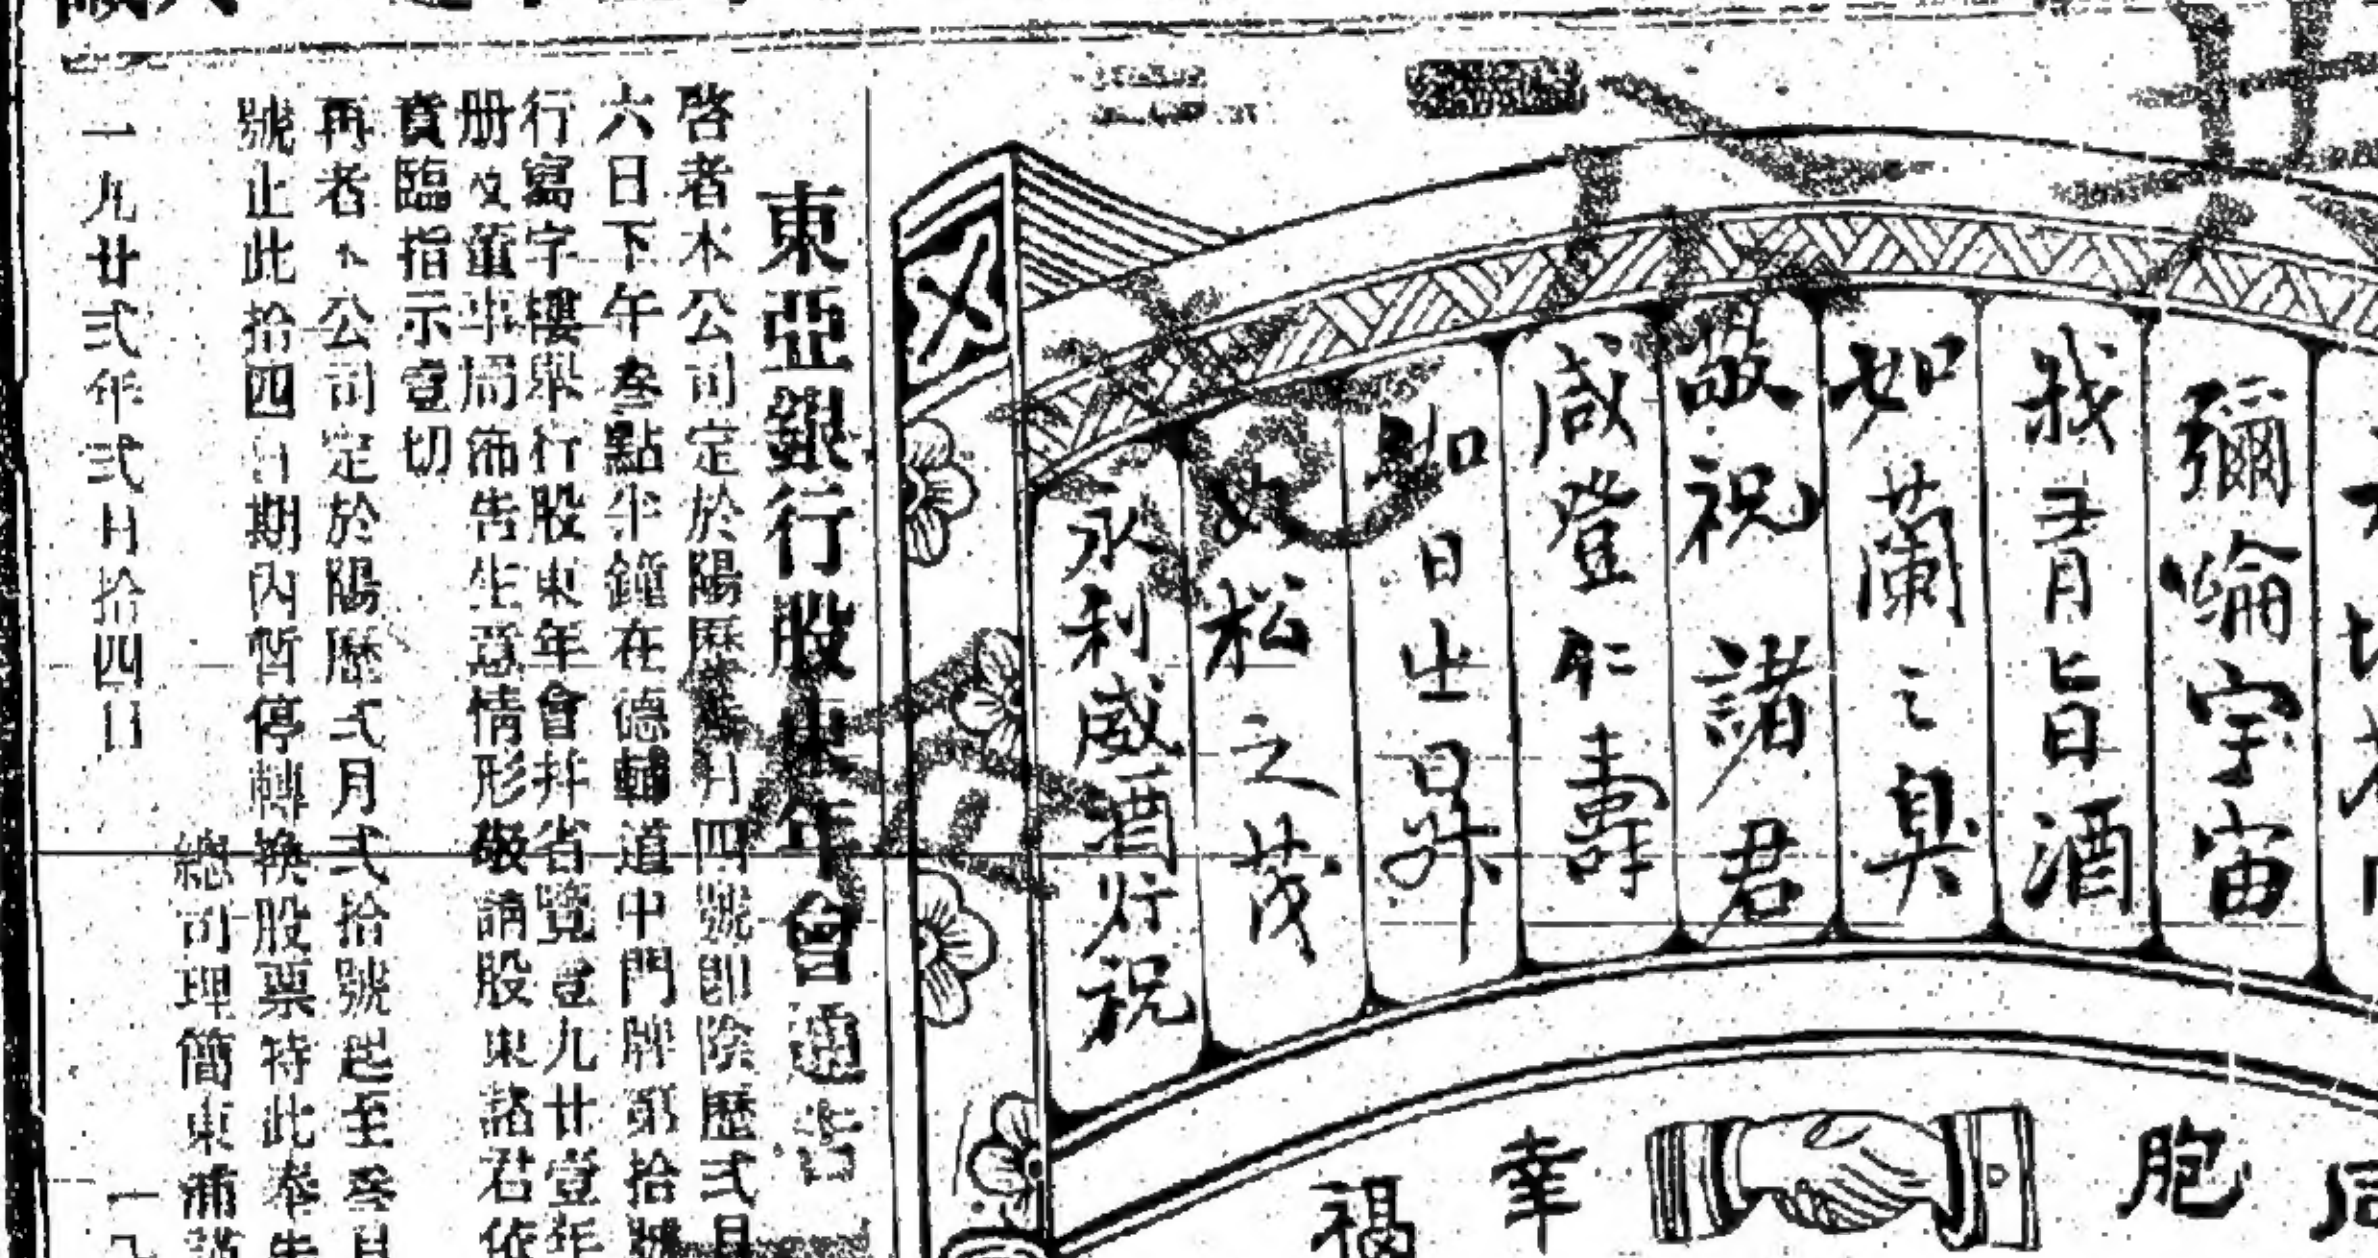 彌綸宇宙
我有旨酒
如蘭之臭
敬祝諸君
咸登仁壽
如日之昇
如松之茂
永利威酒行祝
同胞
幸福
東亞銀行股東年會通告
啓者本公司定於陽歷叁月四號即陰歷弍月
六日下午叁點半鐘在德輔道中門牌第拾號
行寫字樓舉行股東年會并省覽壹九廿壹年
册及董事局佈告生意情形敬請股東諸君依
賁臨指示壹切
再者本公司定於陽歷弍月弍拾號起至叁月
號止此拾四日期內暫停轉換股票特此奉告
總司理簡東浦謹
一九廿弍年弍月拾四日